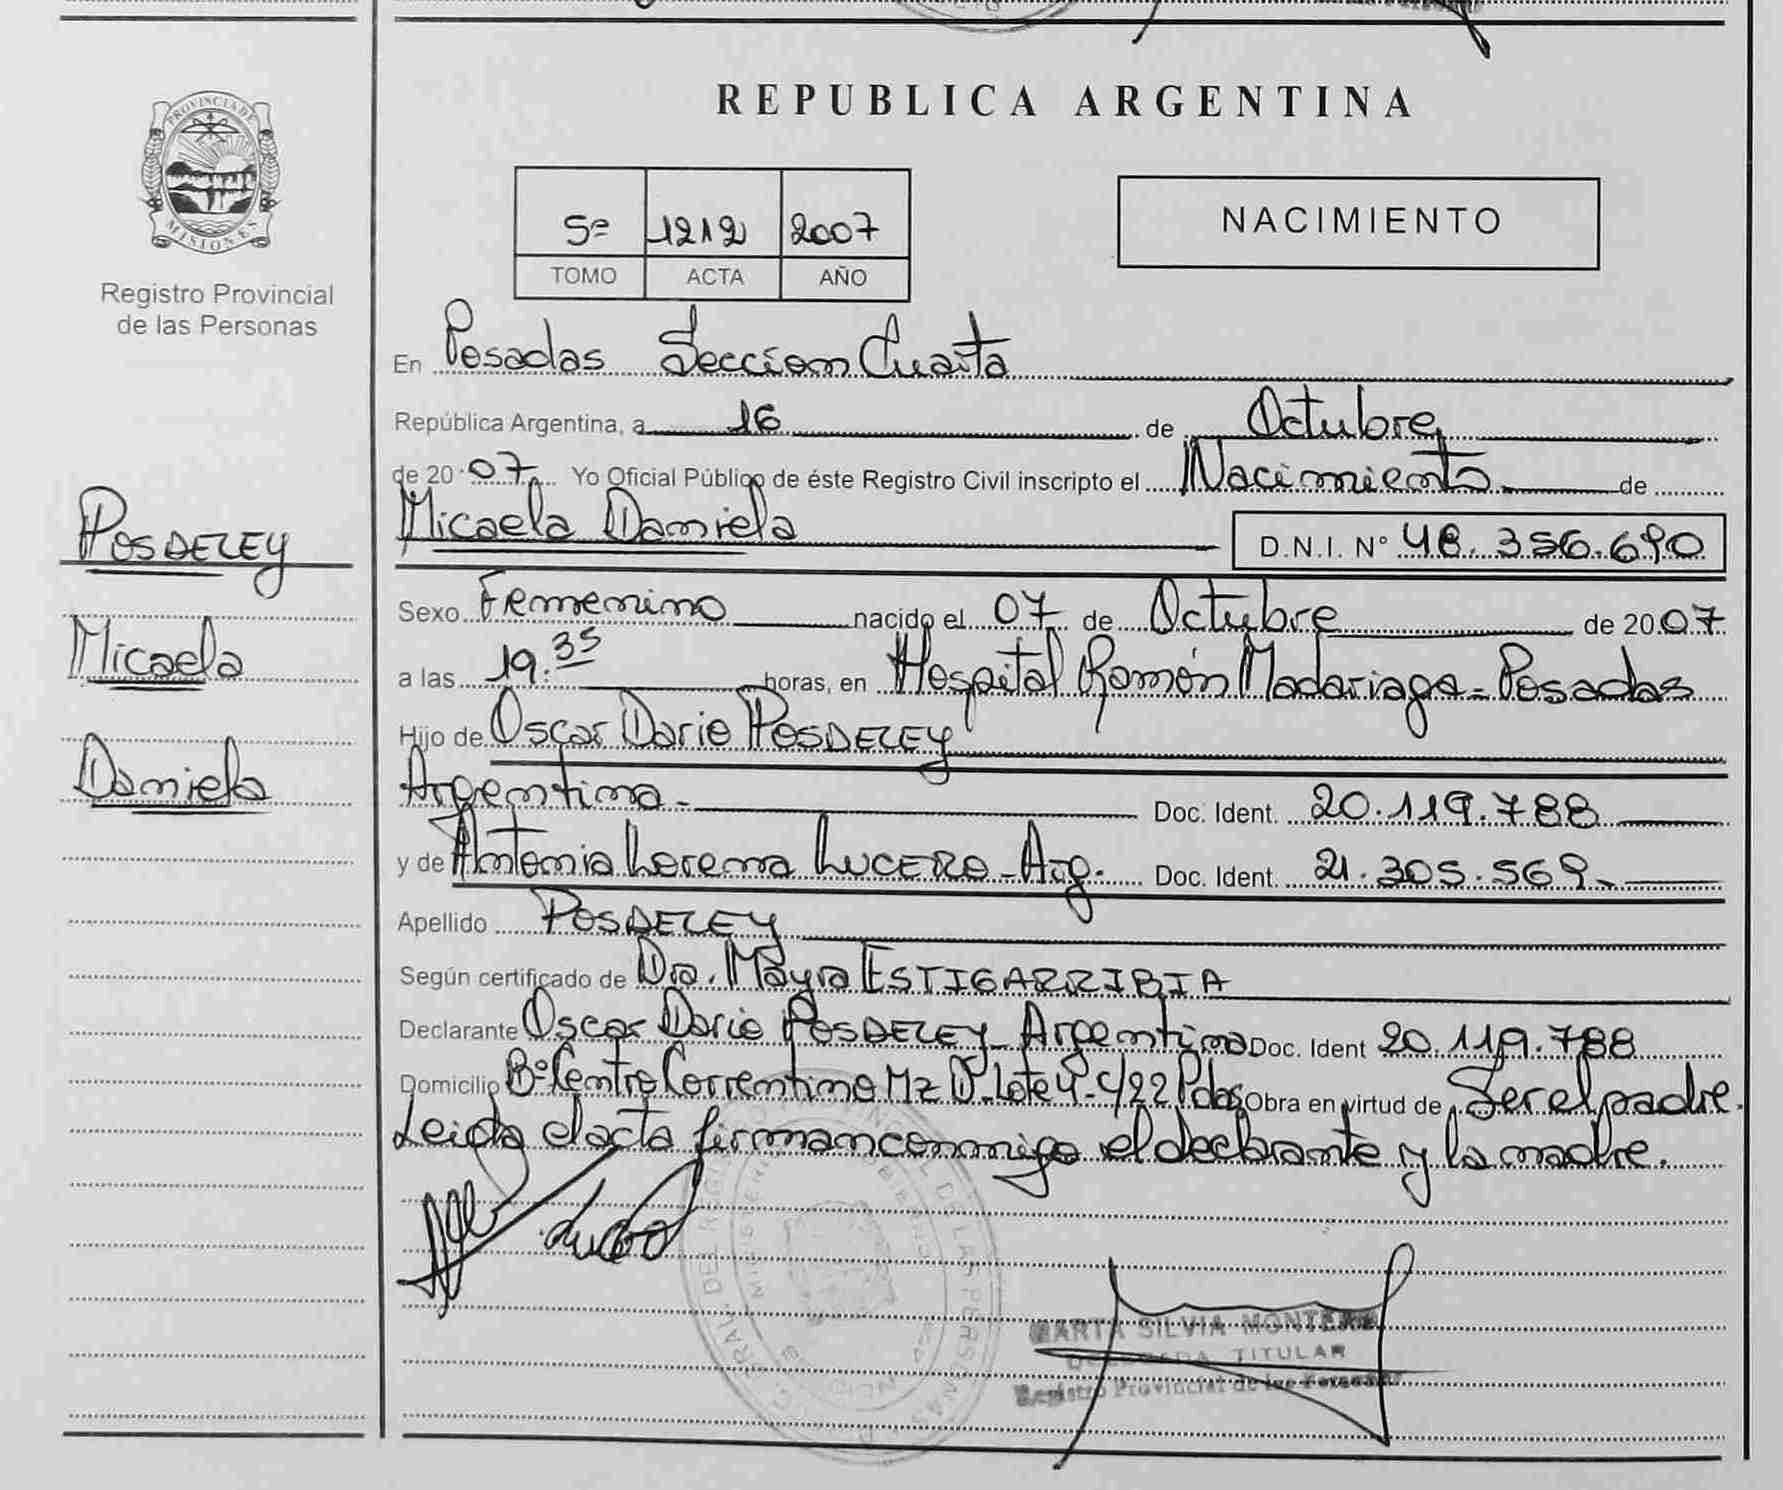 REPUBLICA ARGENTINA
PROVINCIA DE
MISIONES
Registro Provincial
de las Personas
5º 1212 2007
TOMO ACTA AÑO
NACIMIENTO
En Posadas Seccion Cuarta
República Argentina, a 16 de Octubre
de 20 07 Yo Oficial Público de éste Registro Civil inscripto el Nacimiento de
Micaela Daniela D.N.I. Nº 48.356.690
POSDELEY
Micaela
Daniela
Sexo Femenino nacido el 07 de Octubre de 2007
a las 19.35 horas, en Hospital Ramón Madariaga - Posadas
Hijo de Oscar Dario POSDELEY
Argentina - Doc. Ident. 20.119.788
y de Antonia Lorena LUCERO - Arg. Doc. Ident. 21.305.569.-
Apellido POSDELEY
Según certificado de Dra. Mayra ESTIGARRIBIA
Declarante Oscar Dario POSDELEY - Argentina Doc. Ident 20.119.788
Domicilio Bº Centro Correntino Mz D-Lote 4-C/22 Pdas. Obra en virtud de Ser el padre.
Leida el acta firman conmigo el declarante y la madre.
MARTA SILVIA
TITULAR
Registro Provincial de las Personas